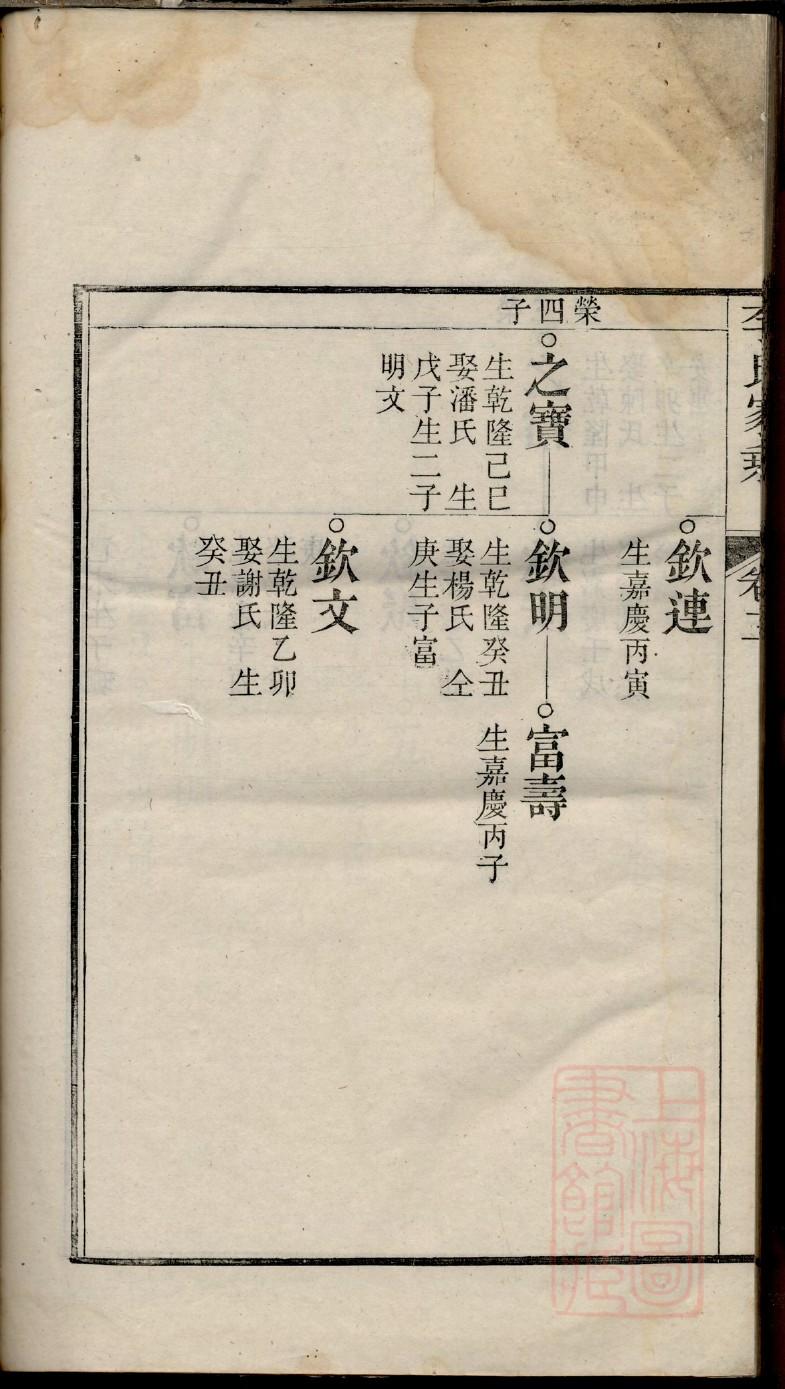 欽連
生嘉慶丙寅
榮四子
之寶
生乾隆己巳
娶潘氏　生
戊子生二子
明文
欽明
生乾隆癸丑
娶楊氏　仝
庚生子富
富壽
生嘉慶丙子
欽文
生乾隆乙卯
娶謝氏　生
癸丑
上海圖
書館藏